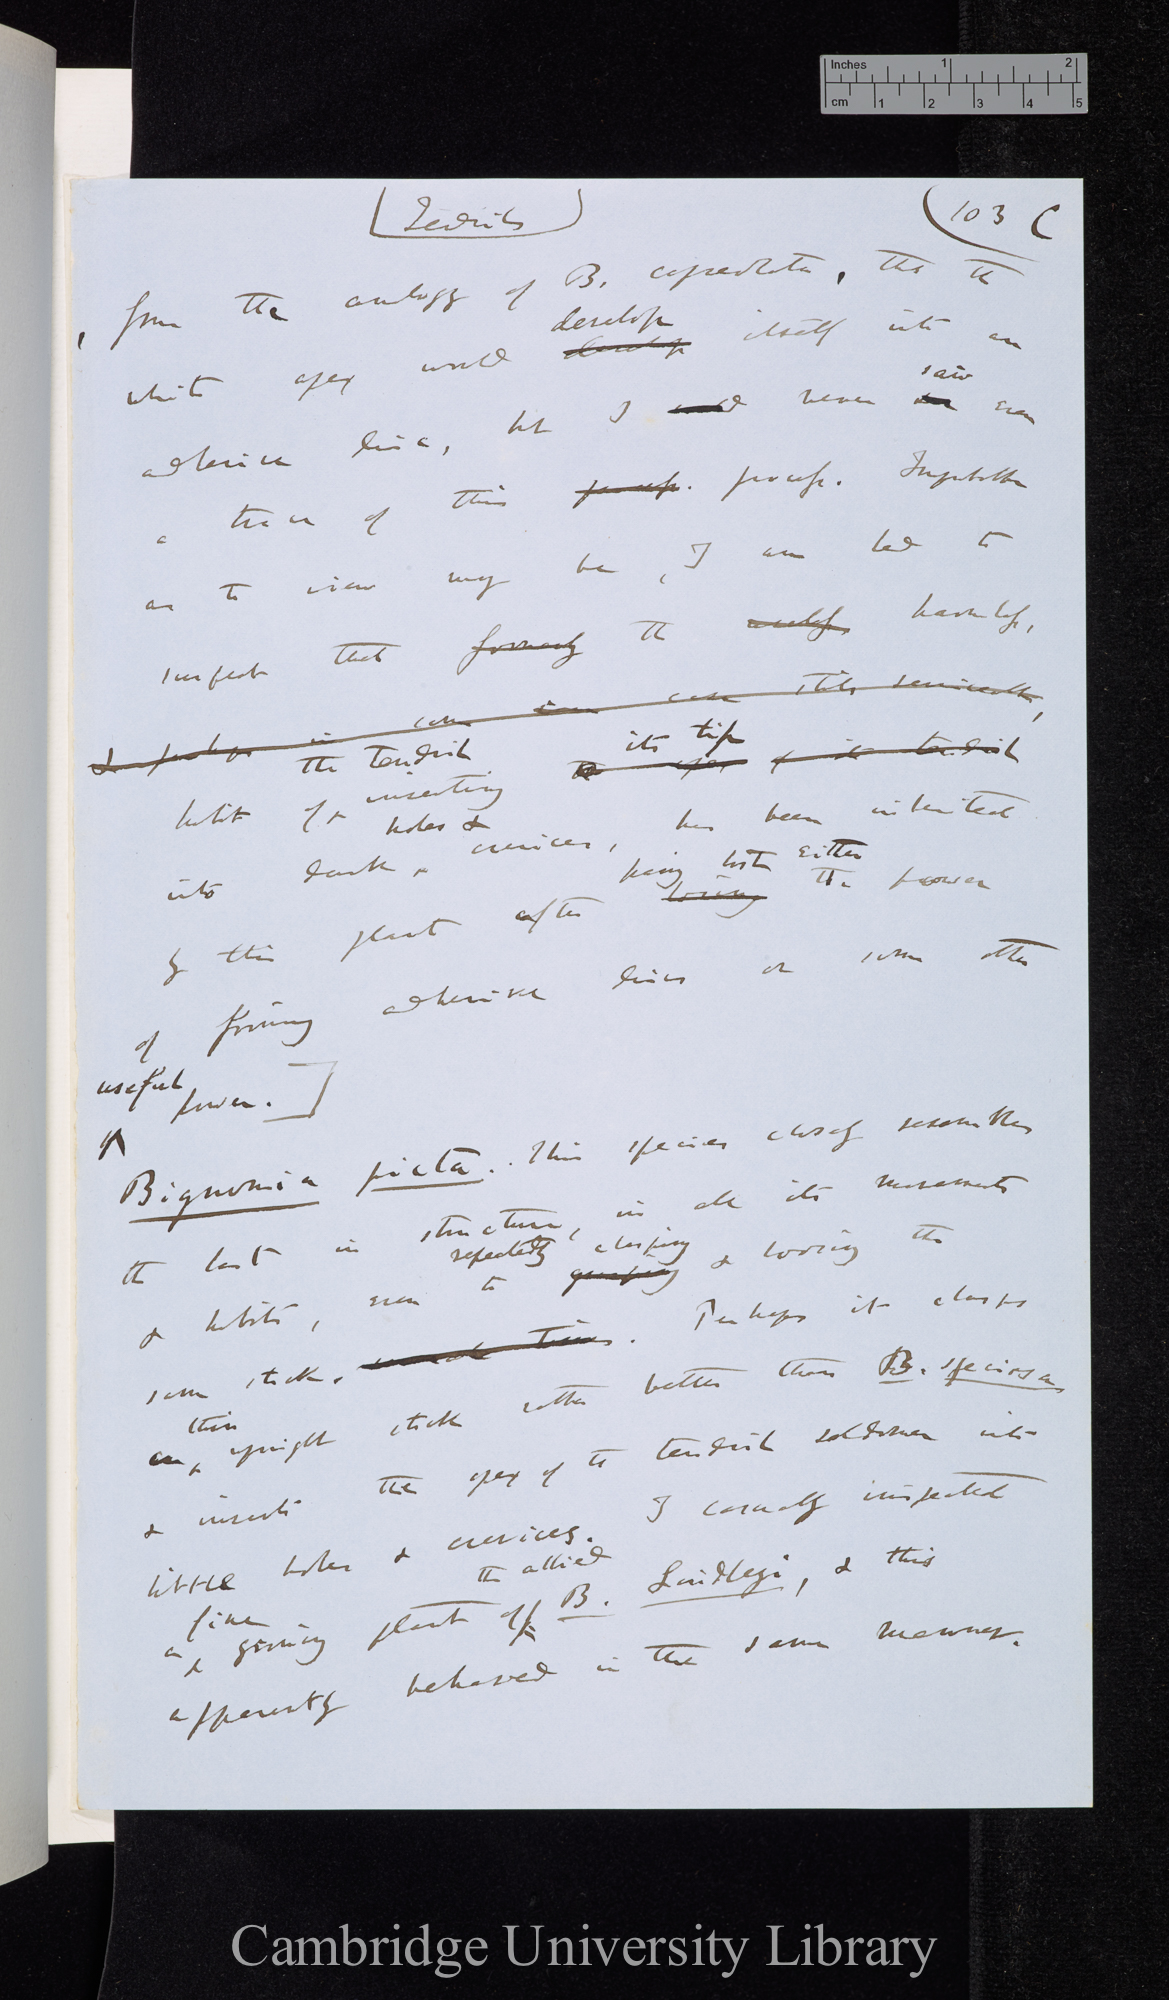 Inches 1 2
cm 1 2 3 4 5
Tendrils
103 C
from the analogy of B. capreolata, tht the
develope
white apex would develope itself into an
saw
adhesive disc, but I could never see even
a trace of this process. process. Improbable
as the view may be, I am led to
suspect that formerly the useless harmless,
& perhaps in some case still serviceable,
the tendril its tip
habit of inserting the apex of its tendril
holes &
into dark crevices, has been inherited
having lost either
by this plant after losing the power
of forming adhesive discs or some other
useful
power.]
Bignonia picta. This species closely resembles
the last in structure, in all its movements
repeatedly clasping
& habits, even to grasping & loosing the
same stick, several times. Perhaps it clasps
thin
an upright stick rather better than B. speciosa
& inserts the apex of the tendril seldomer into
little holes & crevices. I casually inspected
fine the allied
a growing plant of B. Lindleyi, & this
apparently behaved in the same manner.
Cambridge University Library